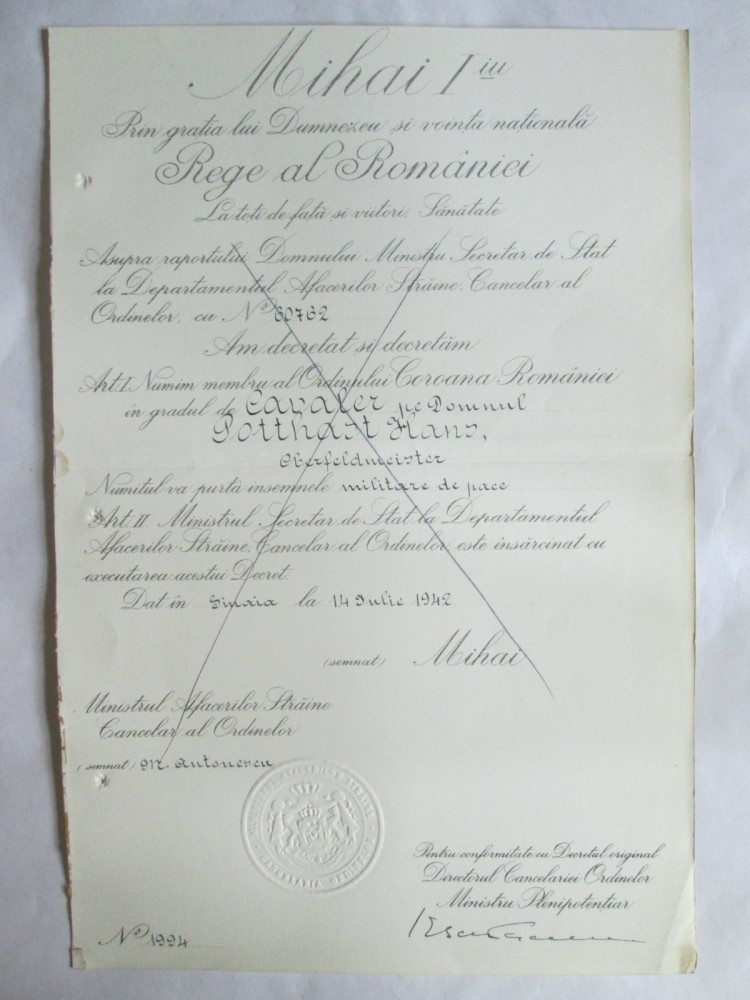 Mihai I iu
Prin gratia lui Dumnezeu si vointa natională
Rege al României
La toti de fată si viitori, Sănătate
Asupra raportului Domnului Ministru Secretar de Stat
la Departamentul Afacerilor Străine, Cancelar al
Ordinelor, cu No 60762
Am decretat si decretăm
Art. I. Numim membru al Ordinului Coroana României
in gradul de Cavaler pe Domnul
Potthast Hans,
Oberfeldmeister
Numitul va purtă insemnele militare de pace
Art. II. Ministrul Secretar de Stat la Departamentul
Afacerilor Străine, Cancelar al Ordinelor, este însărcinat cu
executarea acestui Decret.
Dat in Sinaia la 14 Iulie 1942
(semnat) Mihai
Ministrul Afacerilor Străine
Cancelar al Ordinelor
(semnat) M. Antonescu
CANCELARIA ORDINELOR
Pentru conformitate cu Decretul original
Directorul Cancelariei Ordinelor
Ministru Plenipotentiar
No 1994